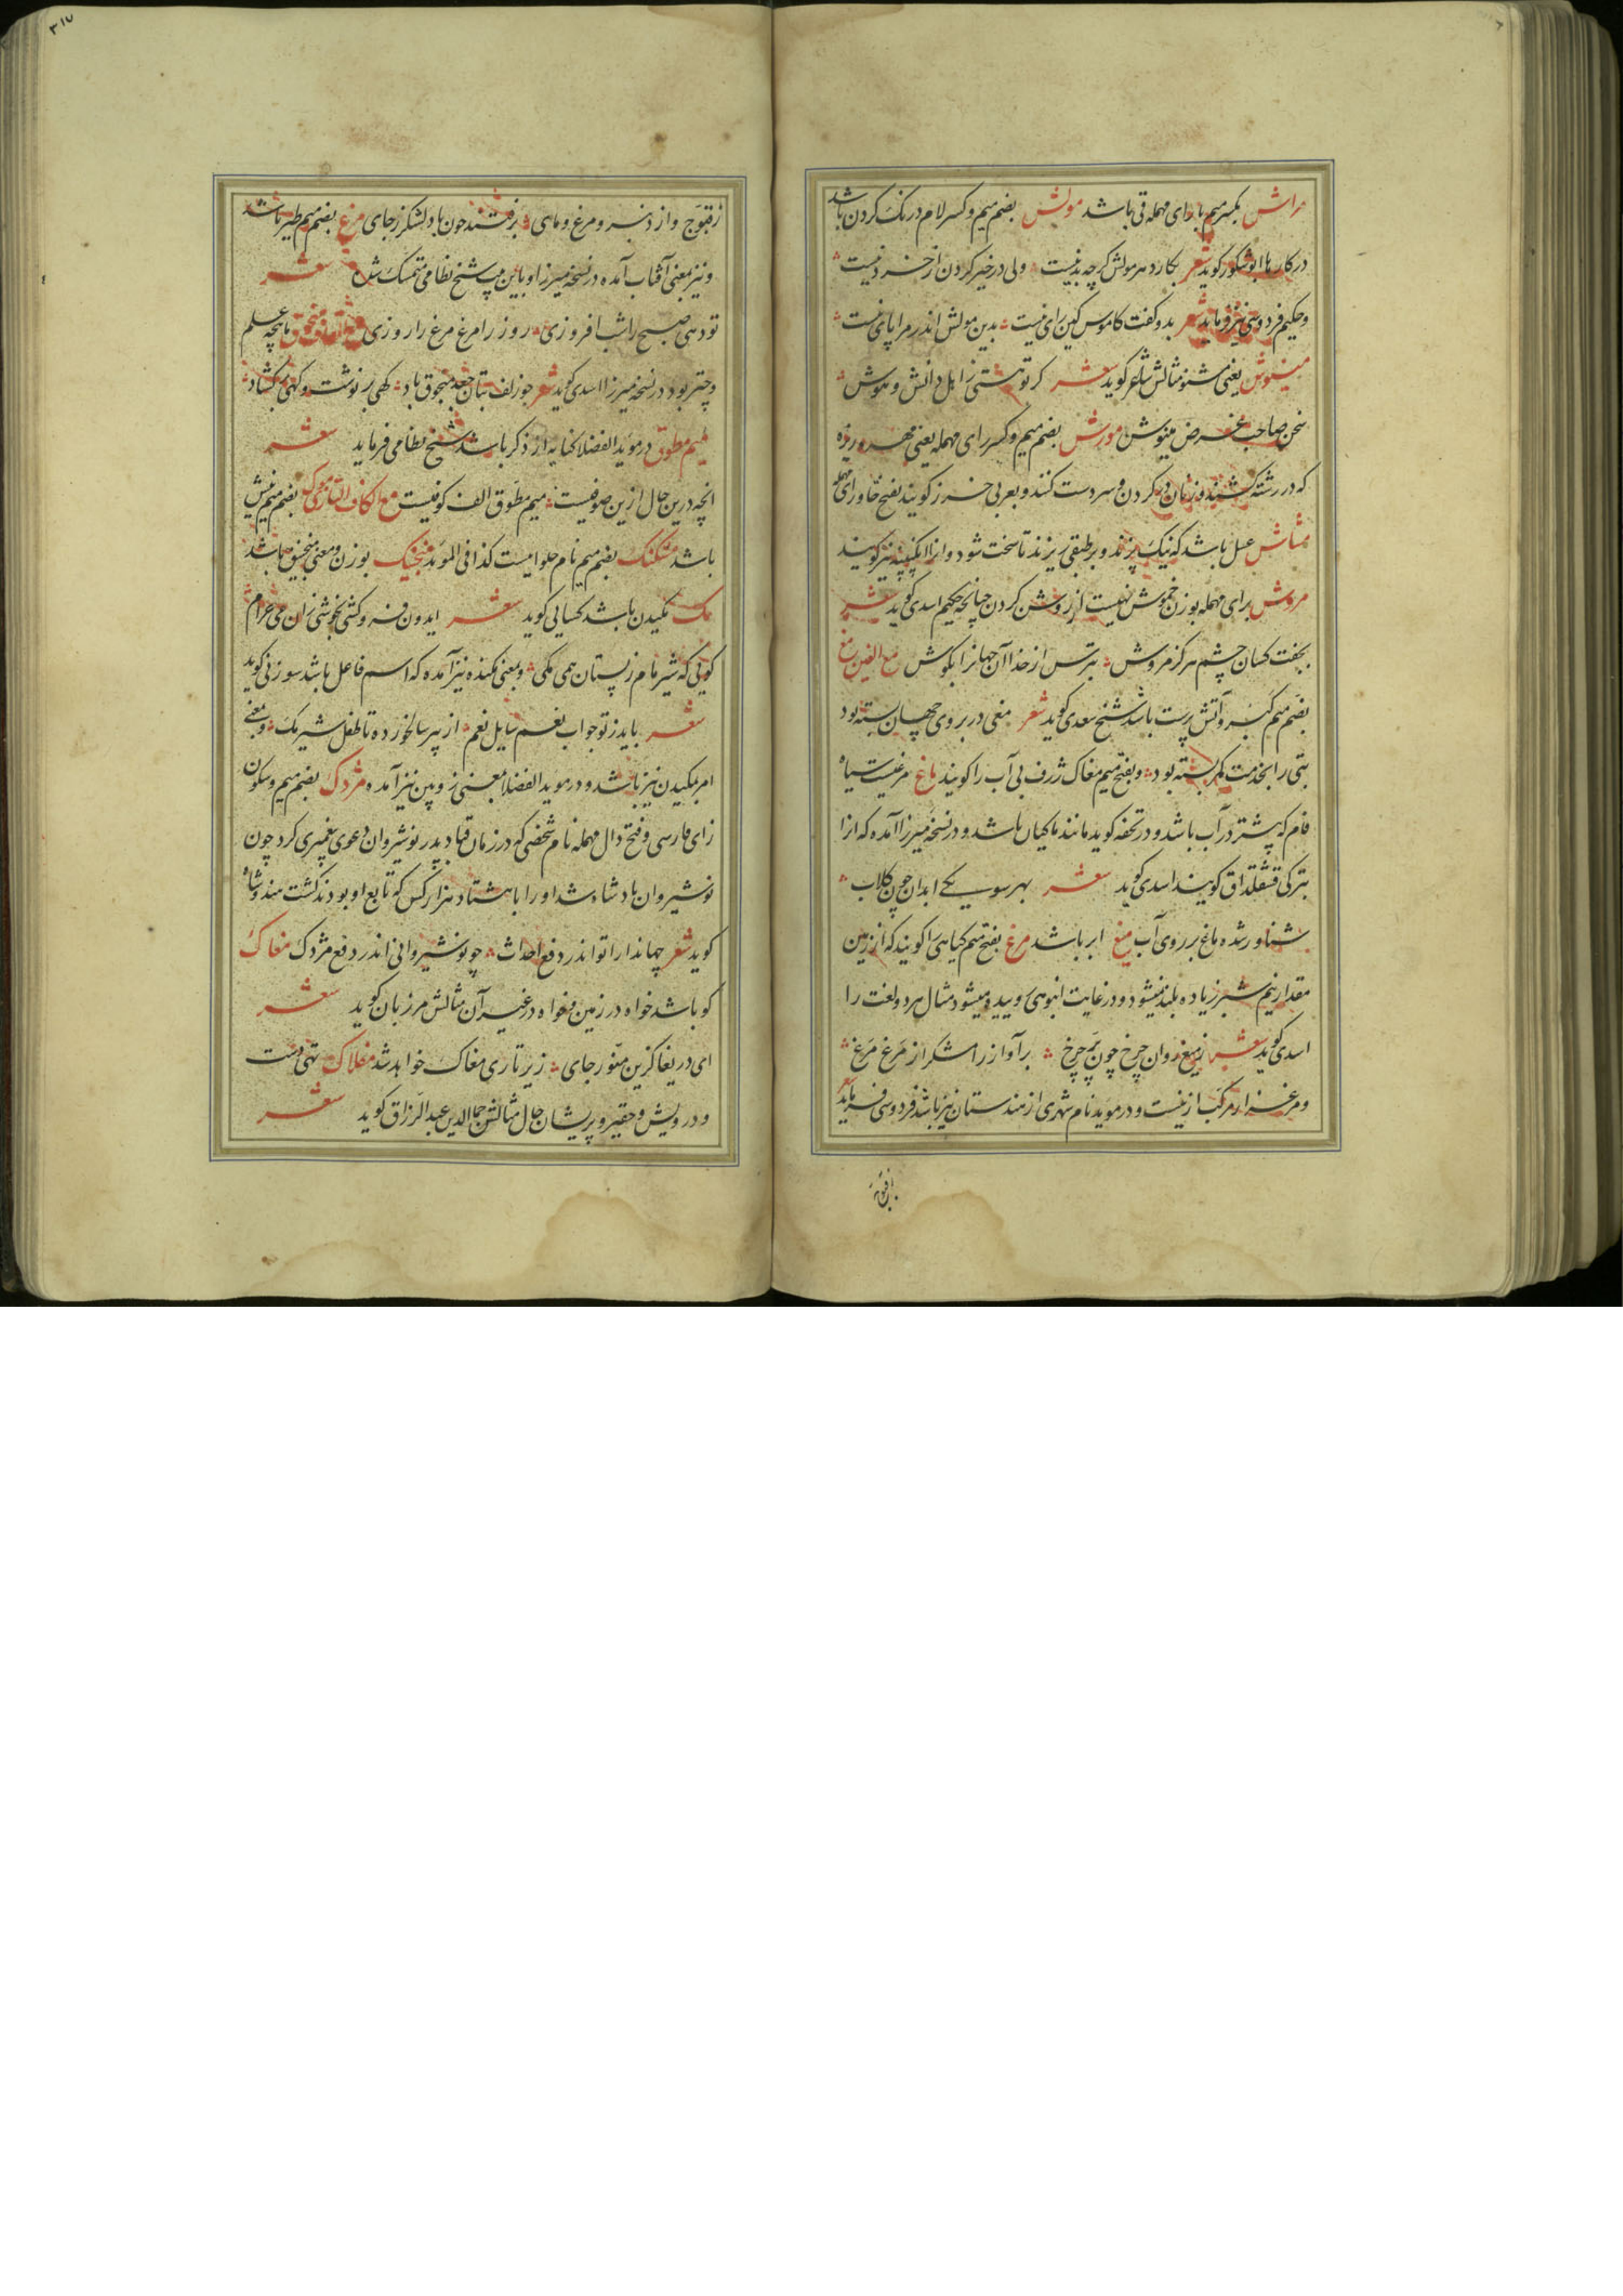 مراش بکسر میم با رای مهمله قی باشد مولش بضم میم و کسر لام درنک کردن باشد
در کارها ابوشکور کوید شعر بکار در مولش کرچه بد نیست ولی در خیر کردن از خرد نیست
و حکیم فردوسی نیز فرماید شعر بدو کفت کاموس کین رای نیست بدین مولش اندر مرا پای نیست
مینوش یعنی مشنو مثالش شاعر کوید شعر کر تو هستی ز اهل دانش و هوش
سخن صاحب غرض مینوش مورش بضم میم و کسر رای مهمله یعنی مهره ریزه
که در رشته کشند و زنان در کردن و سر دست کنند و بعربی خرز کویند بفتح خا و رای مهمله
مشاش عسل باشد که نیک پزند و بر طبقی ریزند تا سخت شود و انرا ابکینه نیز کویند
مروش برای مهمله بوزن خموش نهیست از روشن کردن چنانچه حکیم اسدی کوید شعر
بجفت کسان چشم هرکز مروش بترس از خدا آن جهانرا بکوش مع الغین مغ
بضم میم کبر و آتش پرست باشد شیخ سعدی کوید شعر مغی در بروی جهان بسته بود
بتی را بخدمت کمر بسته بود و بفتح میم مغاک ژرف بی آب را کویند ماغ مرغیست سیاه
فام که پیشتر در آب باشد و در تحفه کوید مانند ماکیان باشد و در نسخه میرزا آمده که انرا
بترکی قشقلداق کویند اسدی کوید شعر بهر سو یکی ابدان چون کلاب
شناور شده ماغ بر روی آب میغ ابر باشد مرغ بفتح میم کیاهی را کویند که از زمین
مقدار نیم شبر زیاده بلند نمیشود و در غایت انبوهی روییده میشود مثال هر دو لغت را
اسدی کوید شعر ز میغ روان چرخ چون پر چرخ بر آواز رامشکر از مرغ مرغ
و مرغزار مرکب ازینست و در موید نام شهری از هندستان نیز باشد فردوسی فرماید شعر
۳۱۷
ز قنوج و از دنبر و مرغ و مای برفتند چون باد لشکر ز جای مرغ بضم میم طیر باشد
و نیز بمعنی آفتاب آمده در نسخه میرزا و باین بیت شیخ نظامی متمسک شده شعر
تو دهی صبح را شب افروزی روز را مرغ مرغ را روزی مع القاف منجوق ماهچه علم
و چتر بود در نسخه میرزا اسدی کوید شعر چو زلف بتان جعد منجوق باد کهی بر نوشت و کهی بر کشاد
میم مطوق در موید الفضلا کنایه از ذکر باشد شیخ نظامی فرماید شعر
انچه درین حال ازین صوفیست میم مطوق الف کوفیست مع الکاف التازی موک بضم میم نیش
باشد مشکنک بضم میم نام حلوایست کذا فی الموید منجنیک بوزن و معنی منجنیق باشد
مک مکیدن باشد کسایی کوید شعر ایدون فرو کشی بخوشی زان می حرام
کویی که شیر مام ز پستان همی مکی و بمعنی مکنده نیز آمده که اسم فاعل باشد سوزنی کوید
شعر باید ز تو جواب نعم سایل نعم از پیر سالخورده تا طفل شیر مک و بمعنی
امر بمکیدن نیز باشد و در موید الفضلا بمعنی زوپین نیز آمده مژدک بضم میم و سکون
زای فارسی و فتح دال مهمله نام شخصی که در زمان قباد پدر نوشیروان دعوی پیغمبری کرد چون
نوشیروان بادشاه شد او را با هشتاد هزار کس که تابع او بودند کشت هندوشاه
کوید شعر جهاندارا تو اندر دفع احداث چو نوشیروانی اندر دفع مژدک مغاک
کو باشد خواه در زمین و خواه در غیر آن مثالش مرزبان کوید شعر
ای دریغا کزین منور جای زیر تاری مغاک خواهد شد مفلاک تهی دست
و درویش و حقیر و پریشان حال مثالش جمال الدین عبد الرزاق کوید شعر